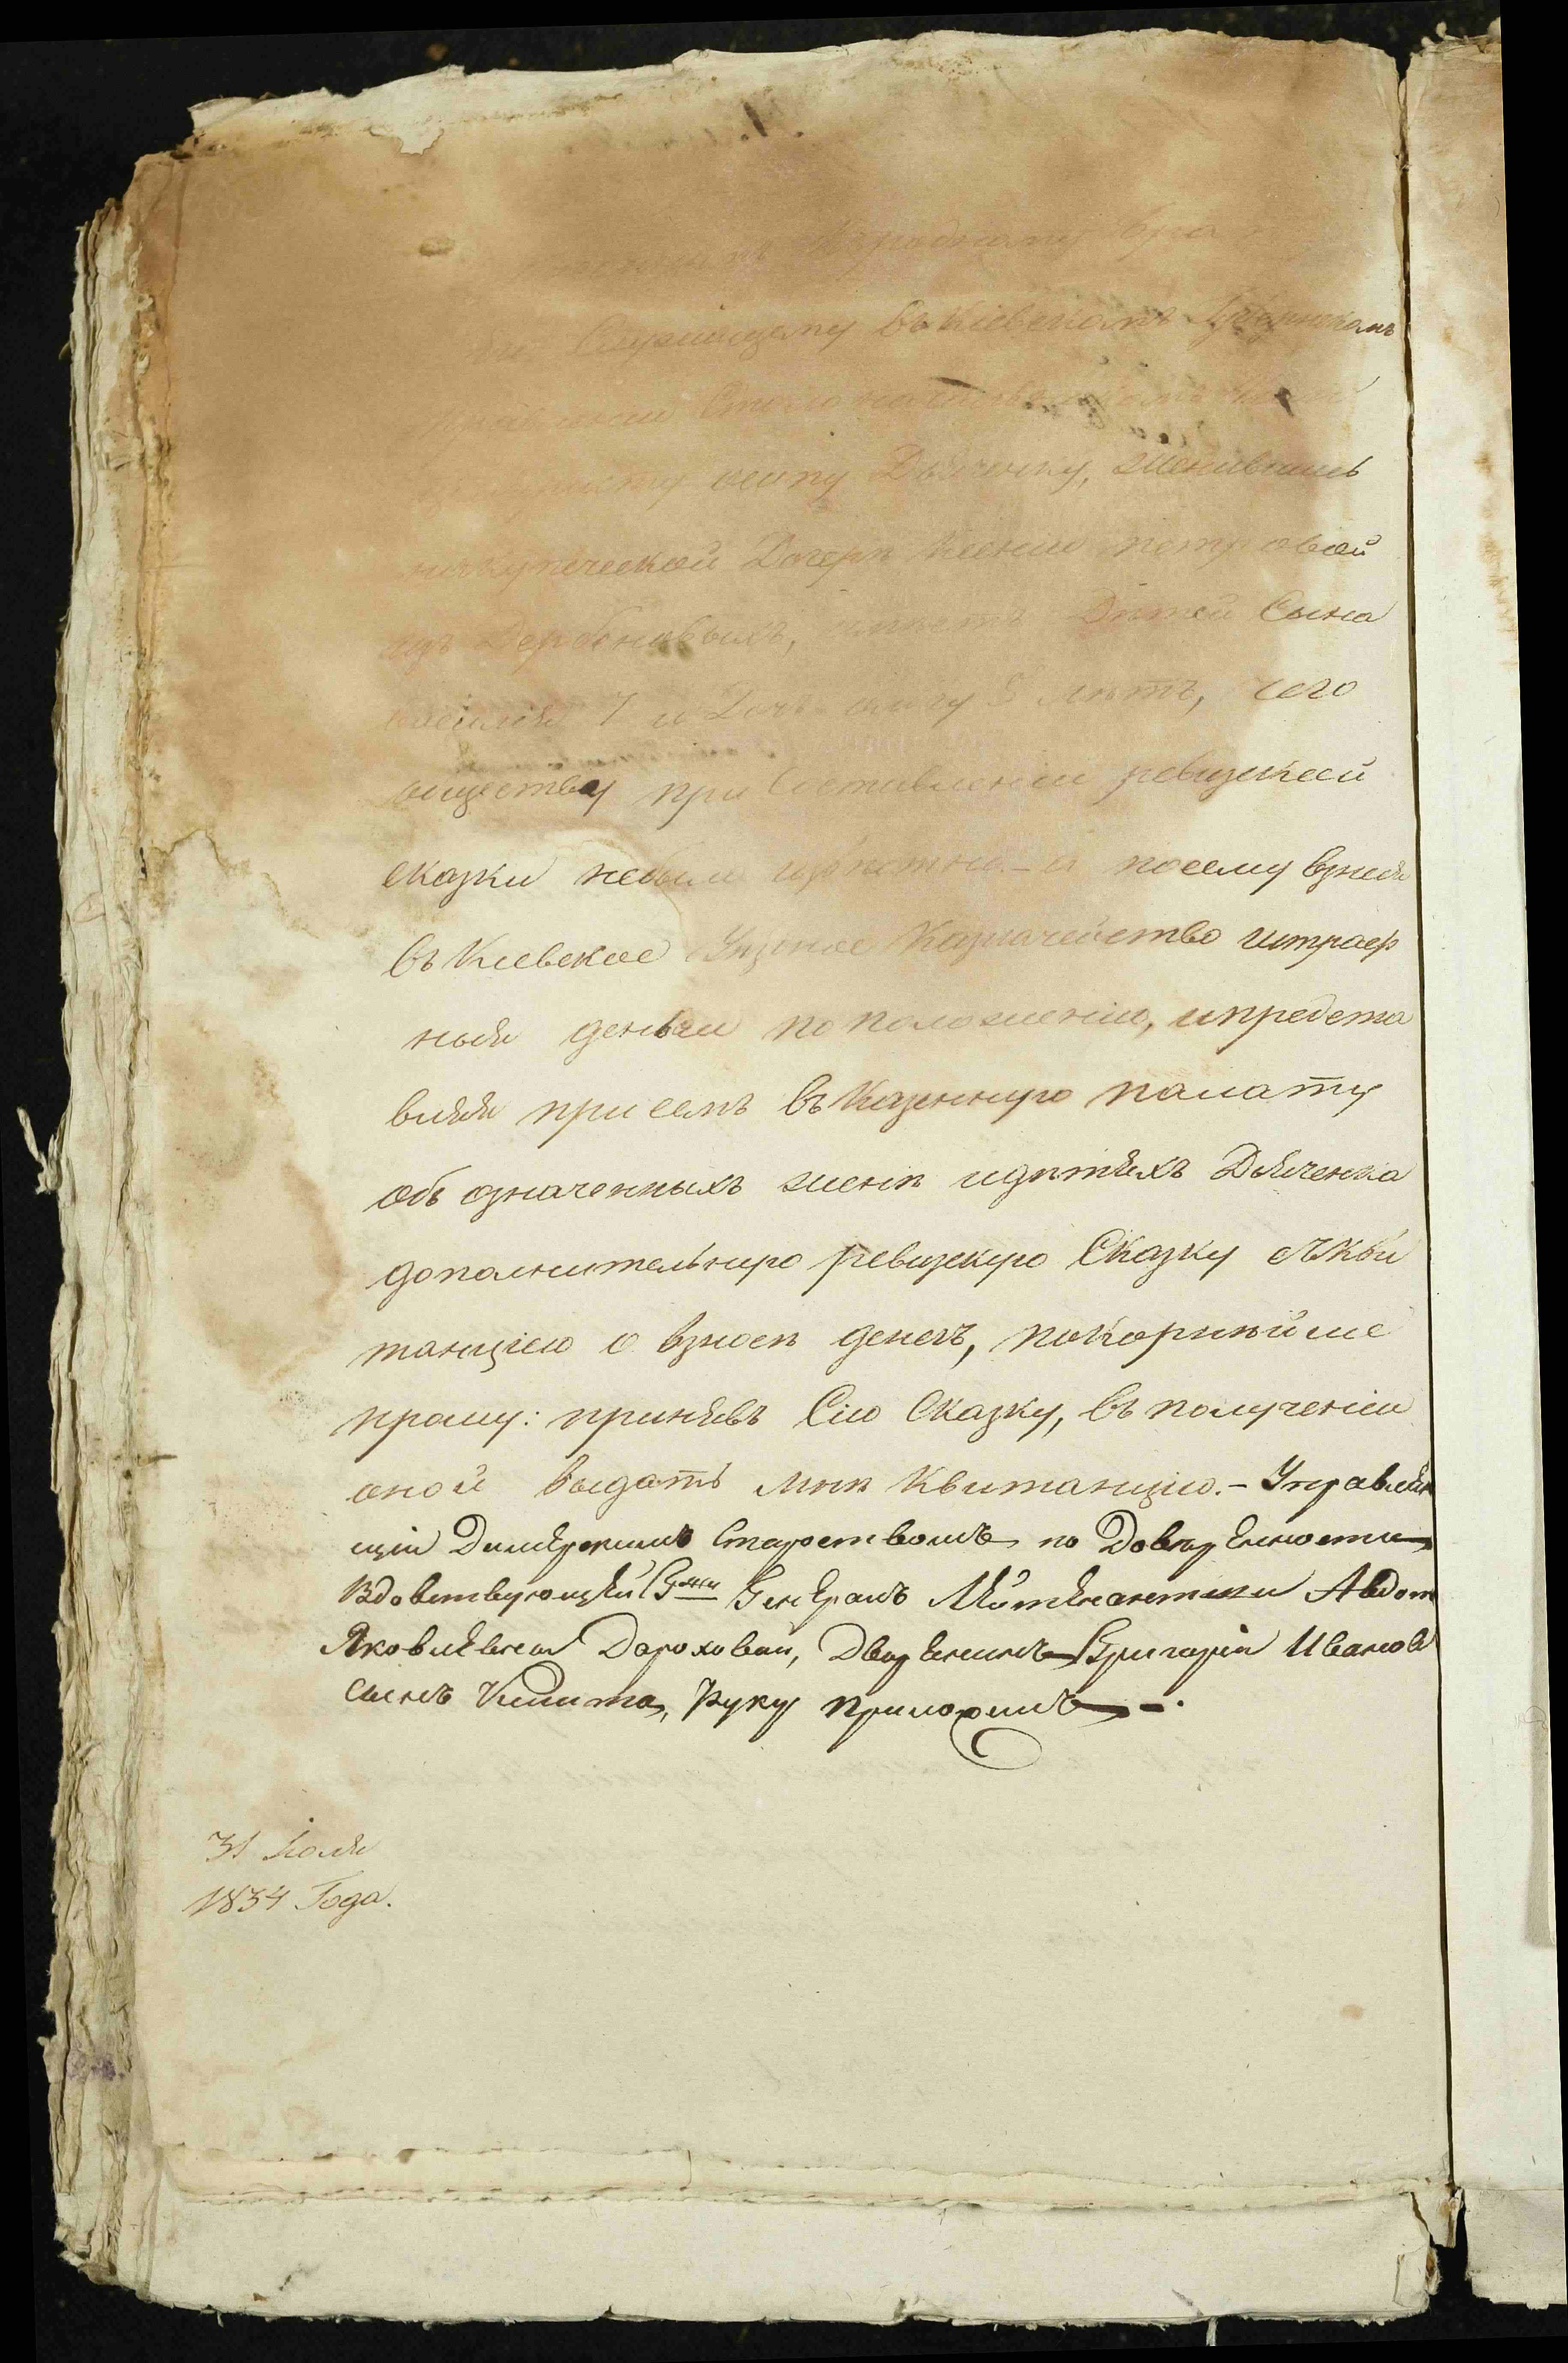 Служащему въ Кіевскомъ Губернскомъ
Правленіи
осипу Дьяченку, женившись
накупеческой Дочери Ксеніи петровой
изъ Дербеновыхъ, имѣетъ Дѣтей Сына
7 и Дочь ольгу 5 лѣтъ, чего
обществу при Составленіи ревизкой
сказки небыло извѣстно. – а посему взнеся
въ Киевское Уѣзное Казначейство штраф
ныя деньги по положенію, ипредста
вляя присемъ въ Казенную палату
объ означенныхъ женѣ идѣтяхъ Дьяченка
дополнительную ревизскую Сказку съкви
танціею о взносѣ денегъ, покорнѣйше
прошу: принявъ Сію Сказку, въ полученіи
оной выдать мнѣ Квитанцію. – Управляю
щій Димерскимъ Староствомъ по Доверенности
Вдовствующей Гжи Генералъ Лейтенантши Авдот
Яковлевны Дороховой, Дворенинъ Григорій Иванов
сынъ руку приложилъ –.
31 Іюля
1834 Года.